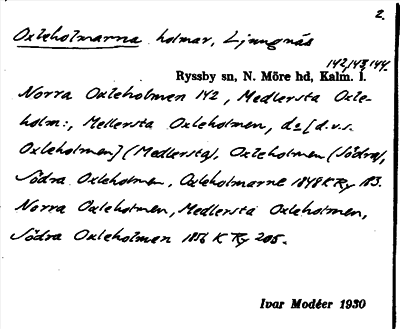 2.
Oxleholmarna holmar, Ljungnäs
142,143,144.
Ryssby sn, N. Möre hd, Kalm. l.
Norra Oxleholmen 142, Medlersta Oxle-
holm:, Mellersta Oxleholmen, do [d.v.s.
Oxleholmen] (Medlersta), Oxleholmen (Södra),
Södra Oxleholmen, Oxleholmarne 1848 K Ry 183.
Norra Oxleholmen, Medlersta Oxleholmen,
Södra Oxleholmen 1856 K Ry 205.
Ivar Modéer 1930